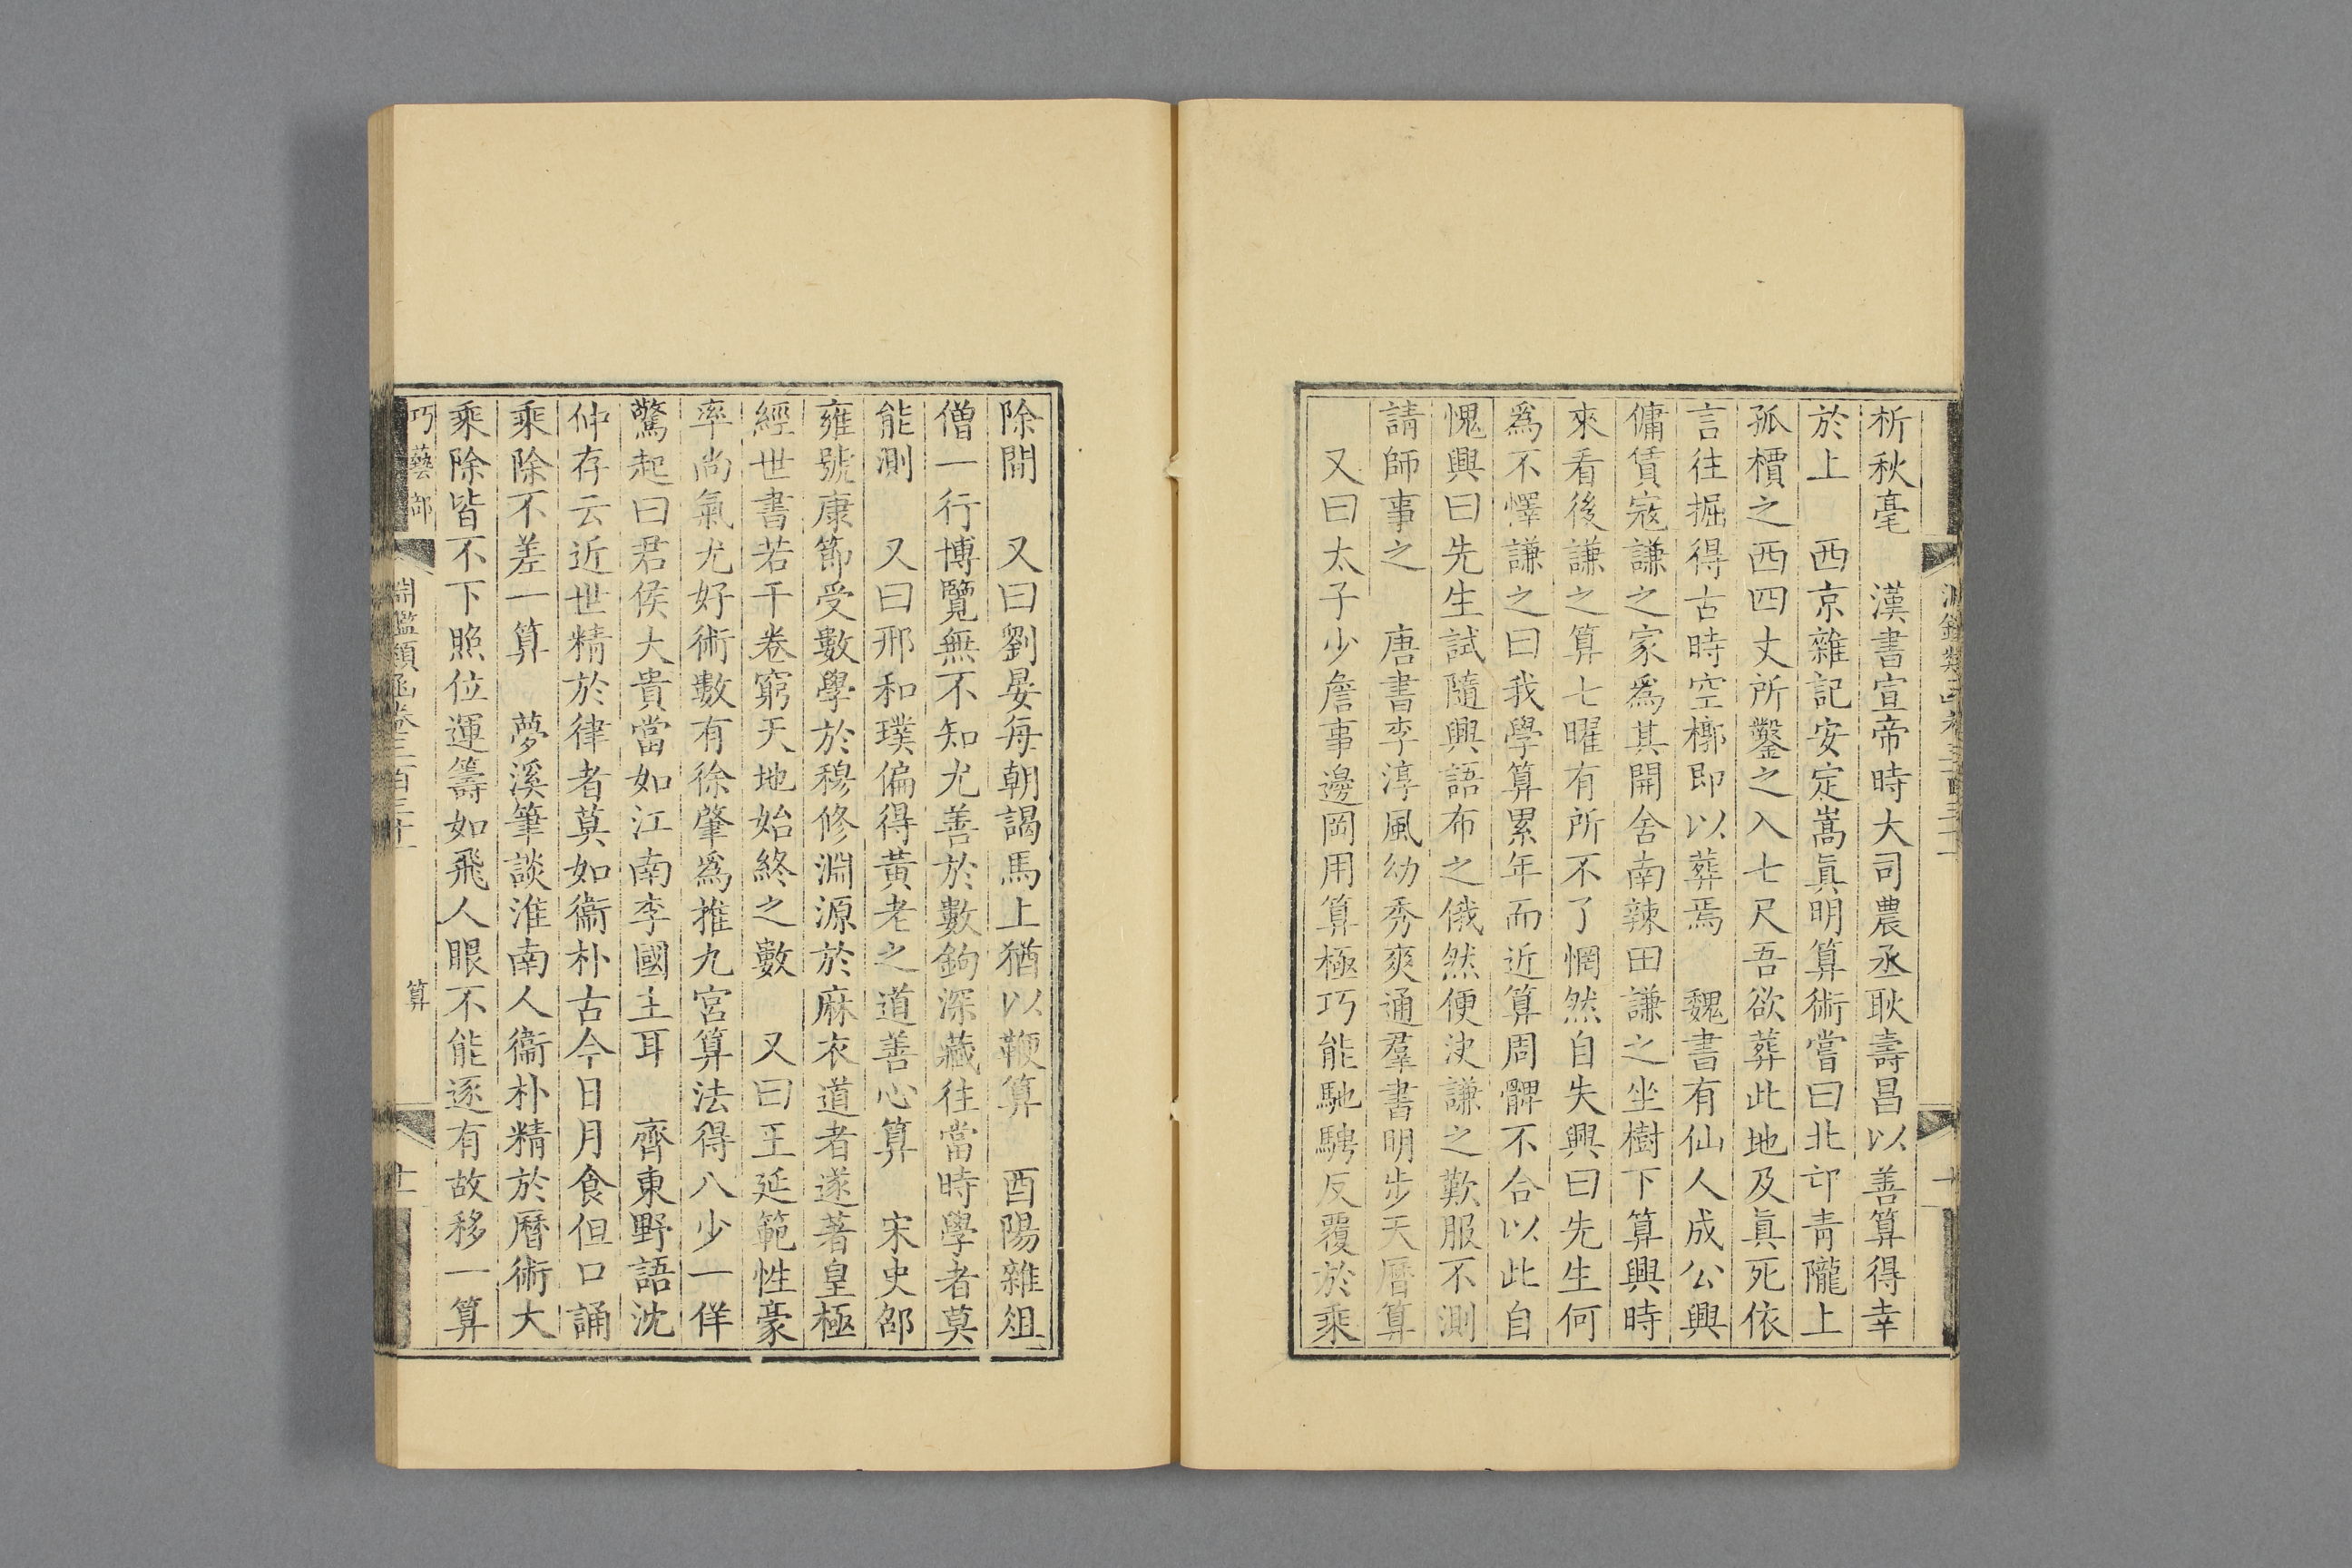 析秋毫　漢書宣帝時大司農丞耿壽昌以善算得幸
於上　西京雜記安定嵩眞明算術嘗曰北邙靑隴上
孤檟之西四丈所鑿之入七尺吾欲葬此地及眞死依
言往掘得古時空槨即以葬焉　魏書有仙人成公興
傭賃宼謙之家爲其開舍南辣田謙之坐樹下算興時
來看後謙之算七曜有所不了惘然自失興曰先生何
爲不懌謙之曰我學算累年而近算周髀不合以此自
愧興曰先生試隨興語布之俄然便決謙之歎服不測
請師事之　唐書李淳風幼秀爽通羣書明步天曆算
又曰太子少詹事邊岡用算極巧能馳騁反覆於乘
除間　又曰劉晏每朝謁馬上猶以鞭算　酉陽雜俎
僧一行博覽無不知尤善於數鉤深藏往當時學者莫
能測　又曰邢和璞偏得黃老之道善心算　宋史邵
雍號康節受數學於穆修淵源於麻衣道者遂著皇極
經世書若干卷窮天地始終之數　又曰王延範性豪
率尚氣尤好術數有徐肇爲推九宮算法得八少一佯
驚起曰君侯大貴當如江南李國主耳　齊東野語沈
仲存云近世精於律者莫如衞朴古今日月食但口誦
乘除不差一算　夢溪筆談淮南人衞朴精於曆術大
乘除皆不下照位運籌如飛人眼不能逐有故移一算
巧藝部
淵鑑類函卷三百三十
算